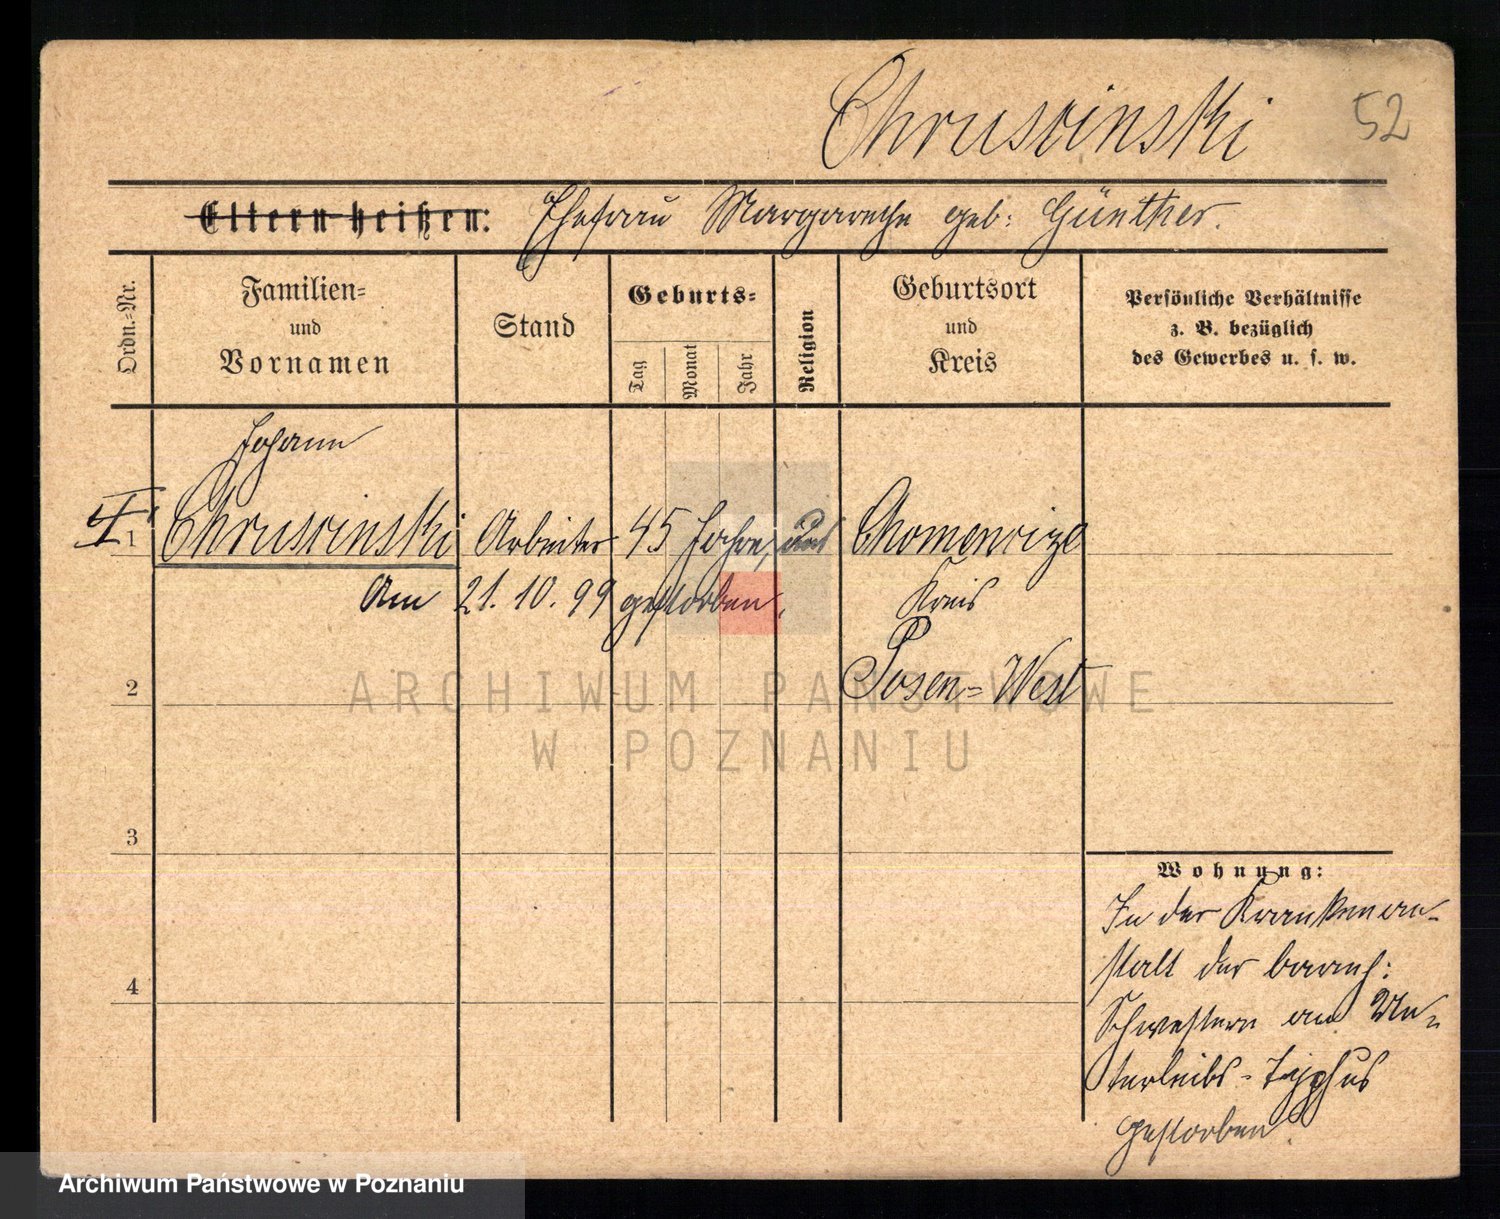 Chruscinski 52
Eltern heißen: Ehefrau Margarethe geb: Günther.
Ordn.-Nr.
Familien-
und
Vornamen
Stand
Geburts-
Tag
Monat
Jahr
Religion
Geburtsort
und
Kreis
Persönliche Verhältnisse
z. B. bezüglich
des Gewerbes u. s. w.
Johann
1 Chruscinski Arbeiter 45 Jahre,
Am 21. 10. 99 gestorben.
Kreis
Posen-West
2
3
4
Wohnung:
In der Krankenan-
stalt der barmh:
Schwestern am Un-
terleibs-Typhus
gestorben.
ARCHIWUM PAŃSTWOWE
W POZNANIU
Archiwum Państwowe w Poznaniu